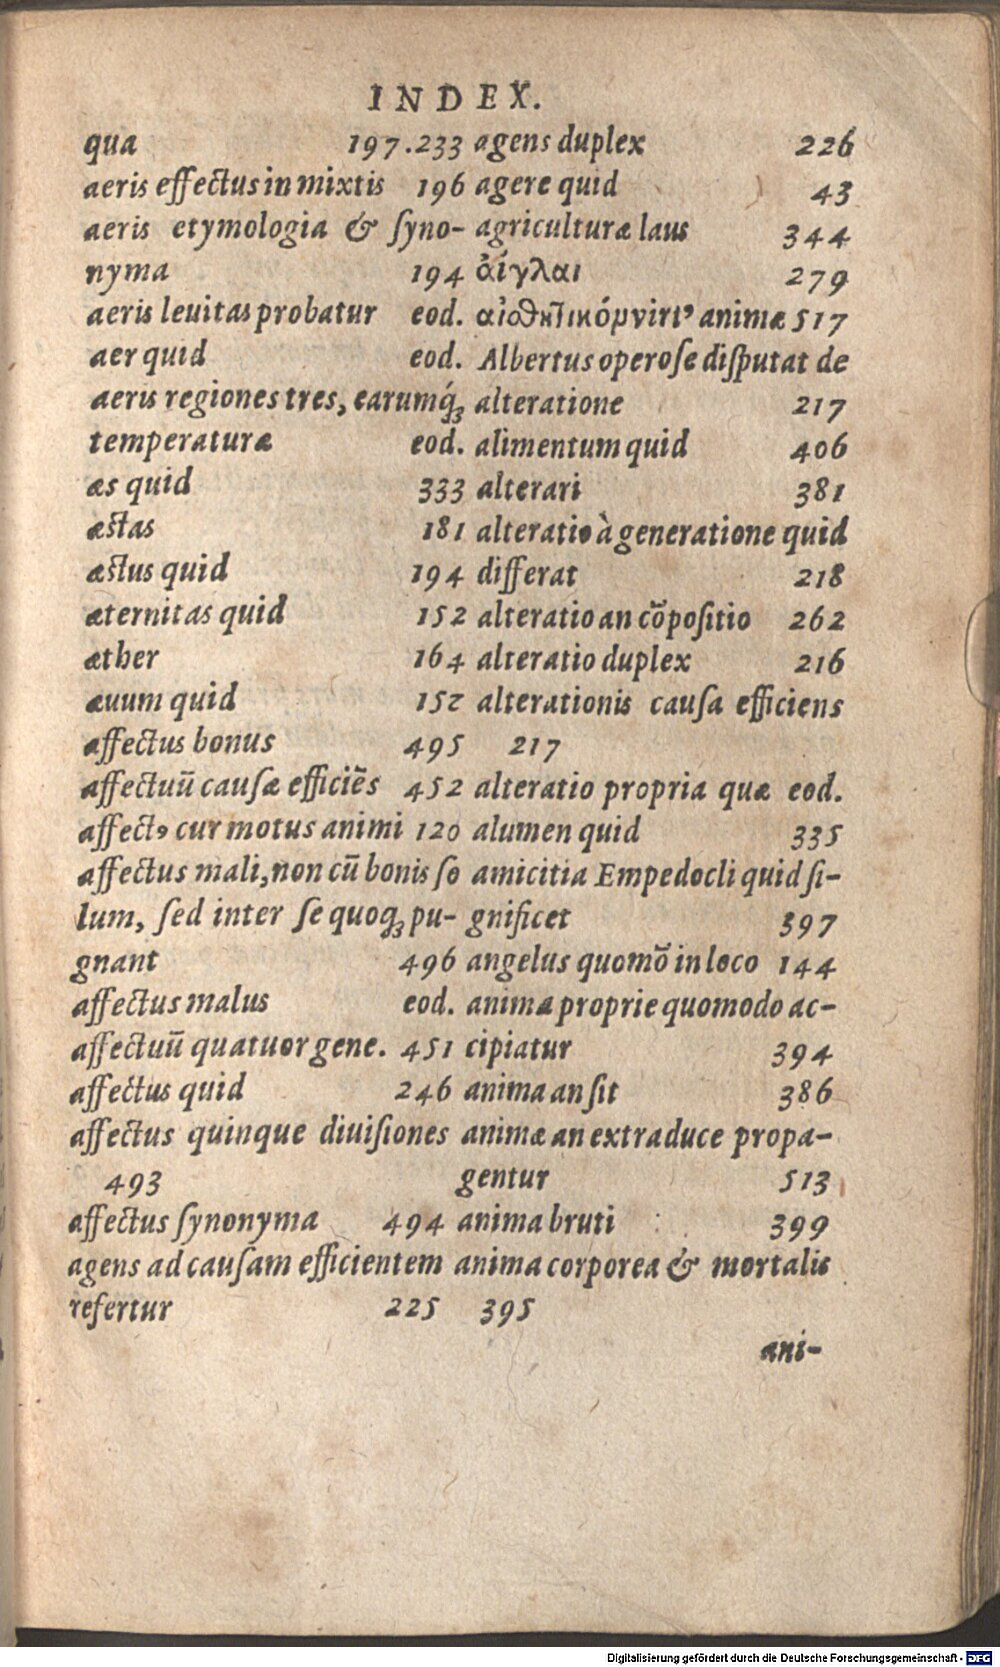 INDEX.
qua 197.233
aeris effectus in mixtis 196
aeris etymologia & ſyno-
nyma 194
aeris leuitas probatur eod.
aer quid eod.
aeris regiones tres, earumq́ꝫ
temperaturæ eod.
æs quid 333
æſtas 181
æſtus quid 194
æternitas quid 152
æther 164
æuum quid 152
affectus bonus 495
affectuū cauſæ efficiēs 452
affectꝰ cur motus animi 120
affectus mali, non cū bonis ſo
lum, ſed inter ſe quoqꝫ pu-
gnant 496
affectus malus eod.
affectuū quatuor gene. 451
affectus quid 246
affectus quinque diuiſiones
493
affectus ſynonyma 494
agens ad cauſam efficientem
refertur 225
agens duplex 226
agere quid 43
agriculturæ laus 344
ἀίγλαι 279
αἰσθητικόν virtꝰ animæ 517
Albertus operoſe diſputat de
alteratione 217
alimentum quid 406
alterari 381
alteratio à generatione quid
differat 218
alteratio an cōpoſitio 262
alteratio duplex 216
alterationis cauſa efficiens
217
alteratio propria quæ eod.
alumen quid 335
amicitia Empedocli quid ſi-
gnificet 397
angelus quomō in loco 144
anima proprie quomodo ac-
cipiatur 394
anima an ſit 386
animæ an extraduce propa-
gentur 513
anima bruti 399
anima corporea & mortalis
395
ani-
Digitalisierung gefördert durch die Deutsche Forschungsgemeinschaft - DFG